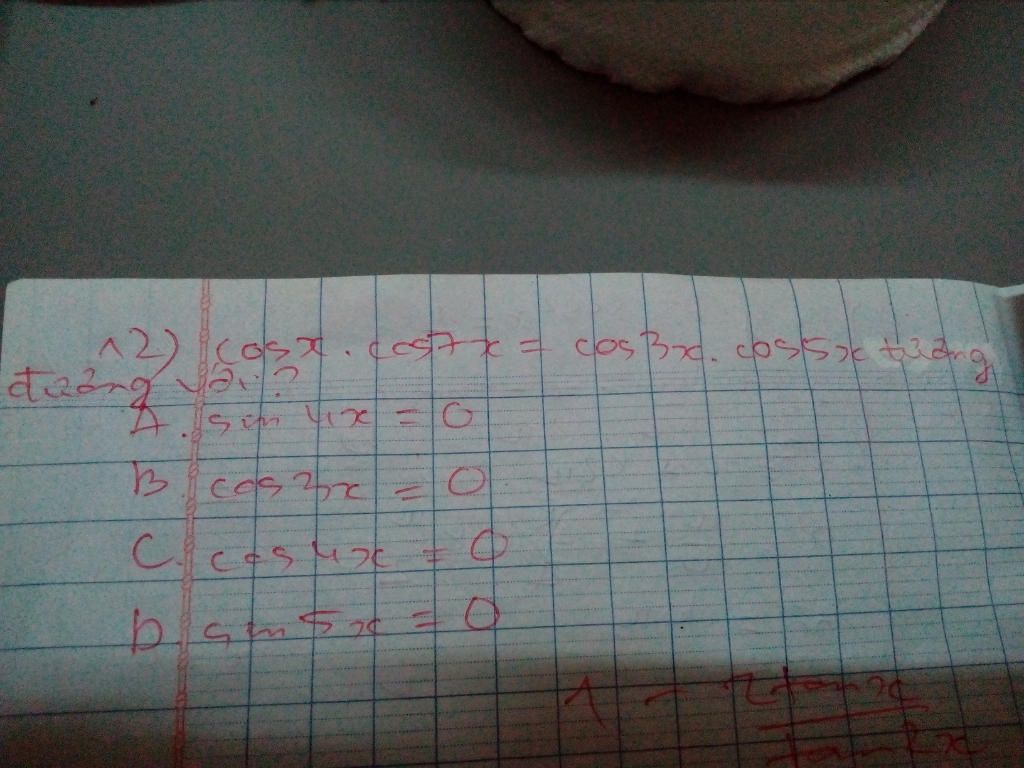 12) cosx . cos7x = cos3x. cos5x tương
đương với?
A. sin 4x = 0
B. cos3x = 0
C. cos4x = 0
D. sin 5x = 0
1 - 2tanx
tan2x